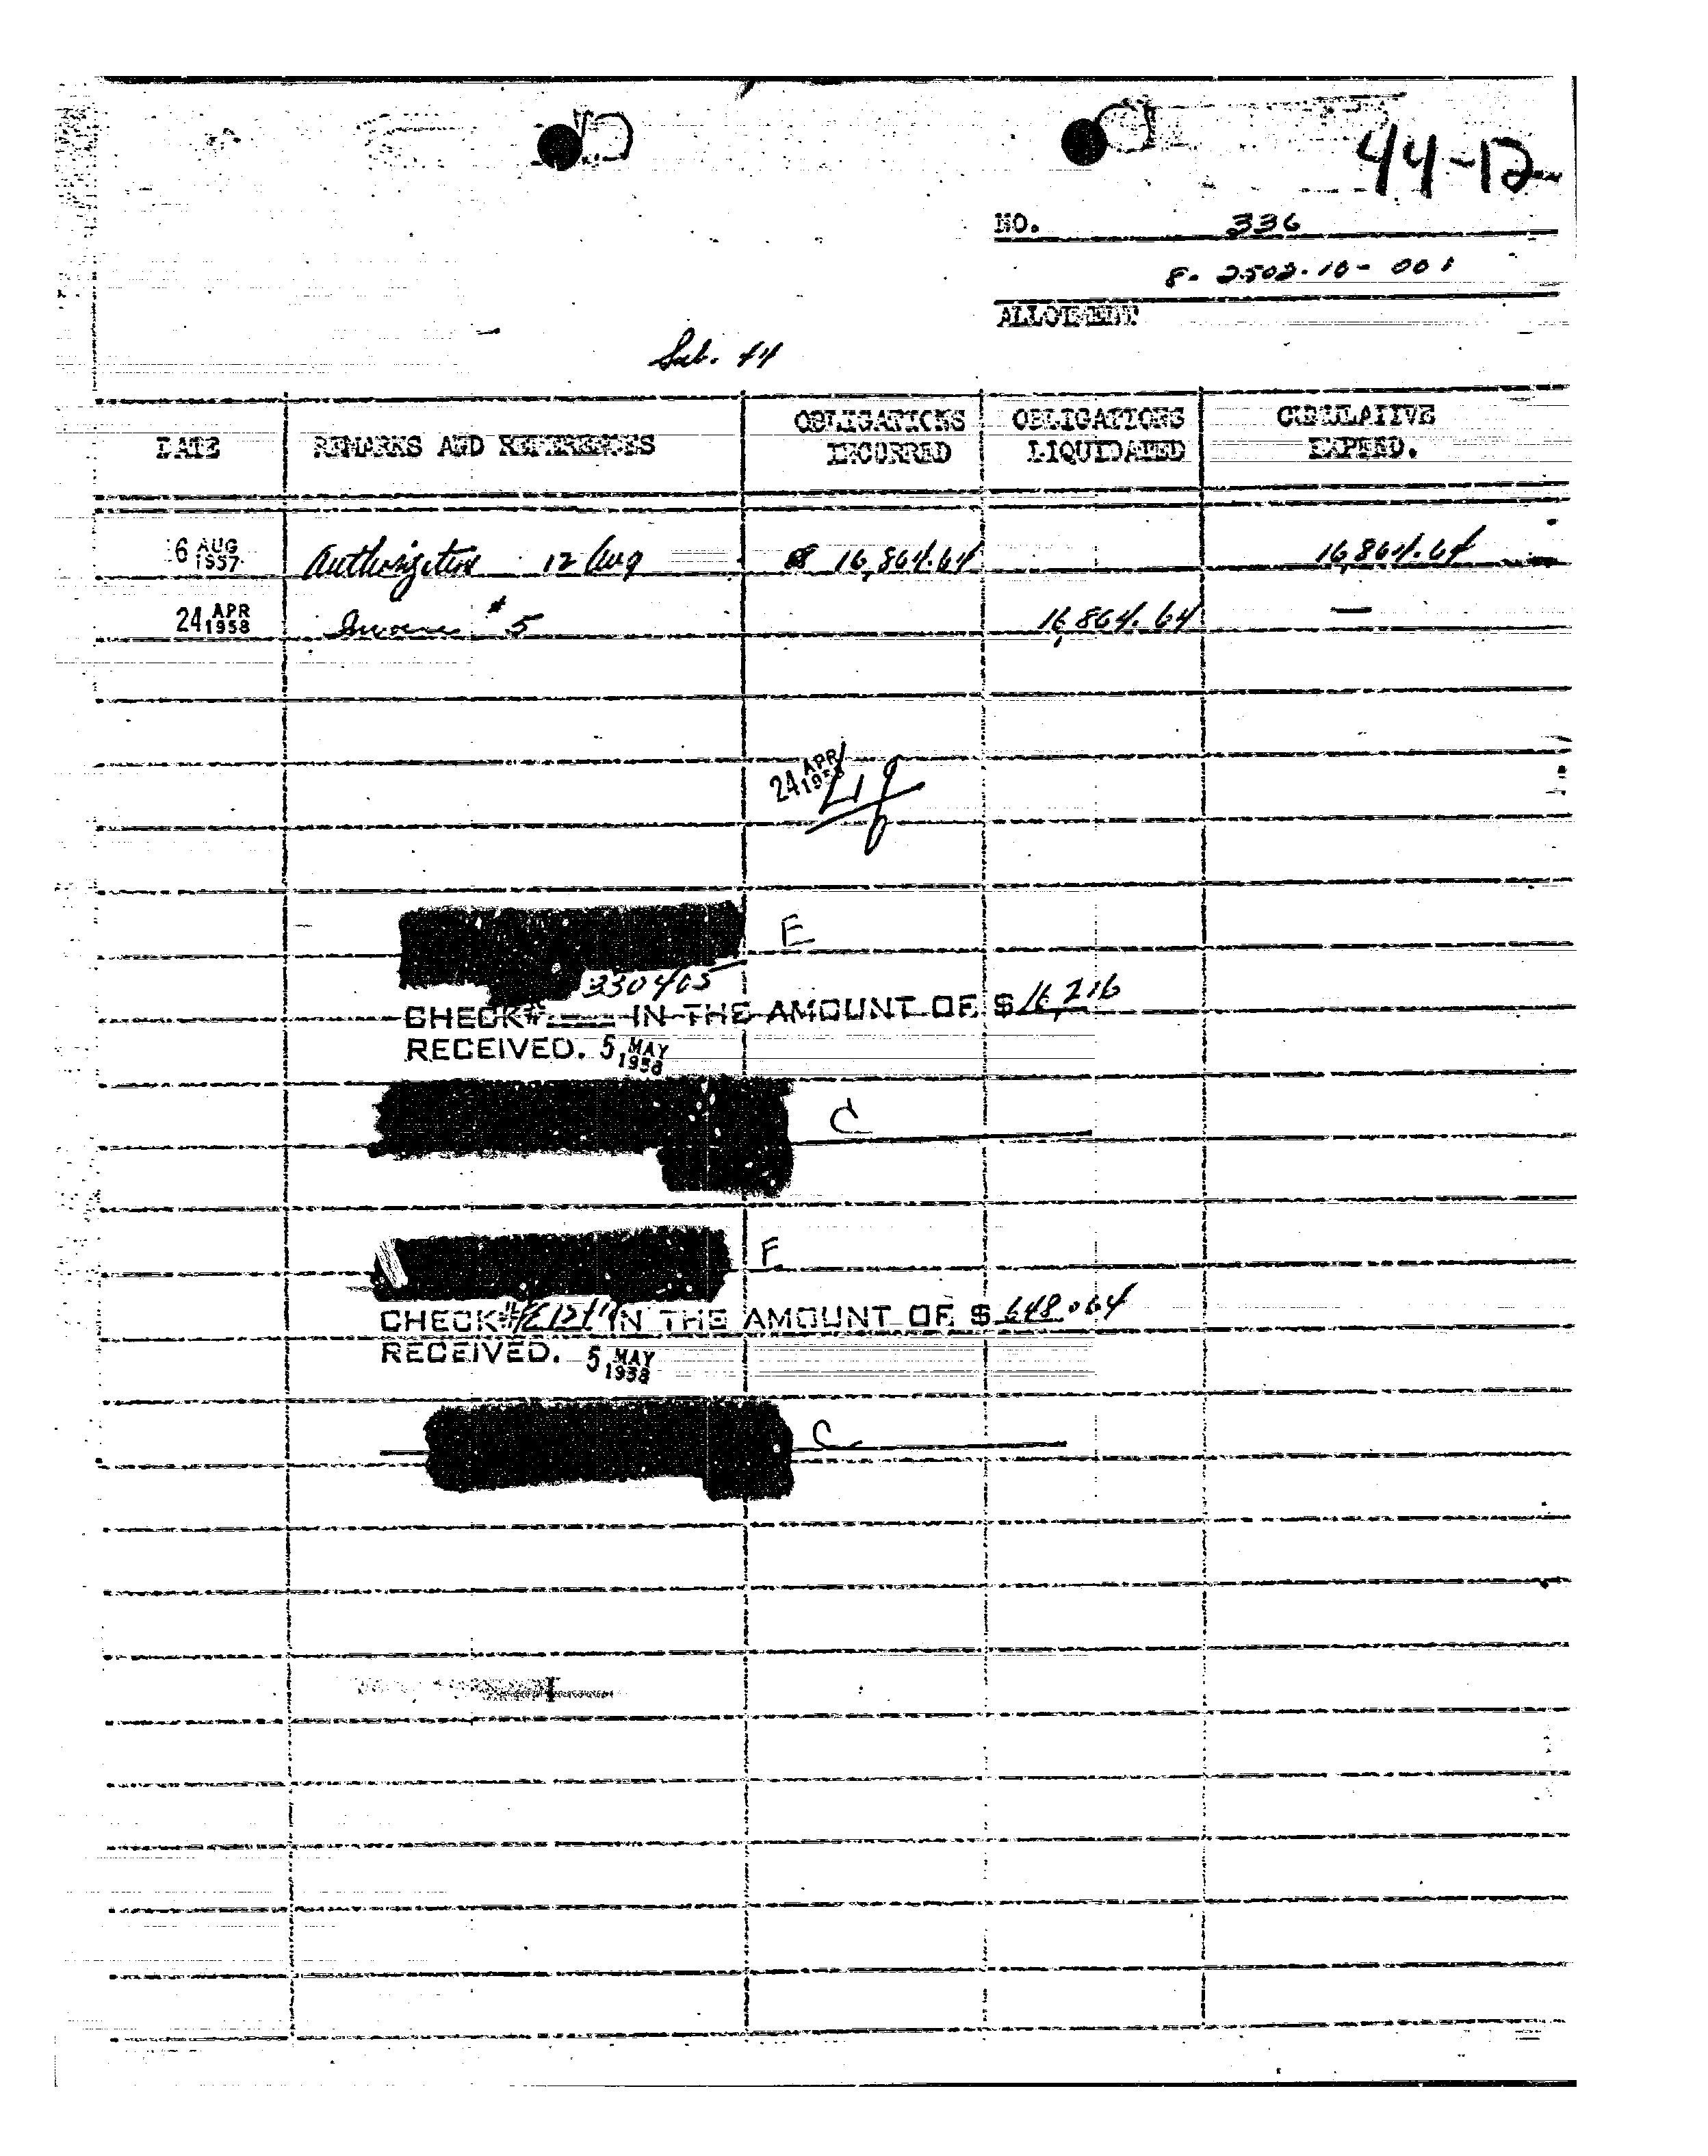 44-12
NO. 336
8-2502-10-001
ALLOTMENT
Sub. 44
DATE REMARKS AND REFERENCES OBLIGATIONS INCURRED OBLIGATIONS LIQUIDATED CUMULATIVE EXPEND.
6 AUG 1957 Authorization 12 Aug $ 16,864.64 16,864.64
24 APR 1958 Invoice #5 16,864.64 —
24 APR 1958
E
330405
CHECK# IN THE AMOUNT OF $ 16,216
RECEIVED. 5 MAY 1958
C
F.
CHECK# IN THE AMOUNT OF $ 648.64
RECEIVED. 5 MAY 1958
C